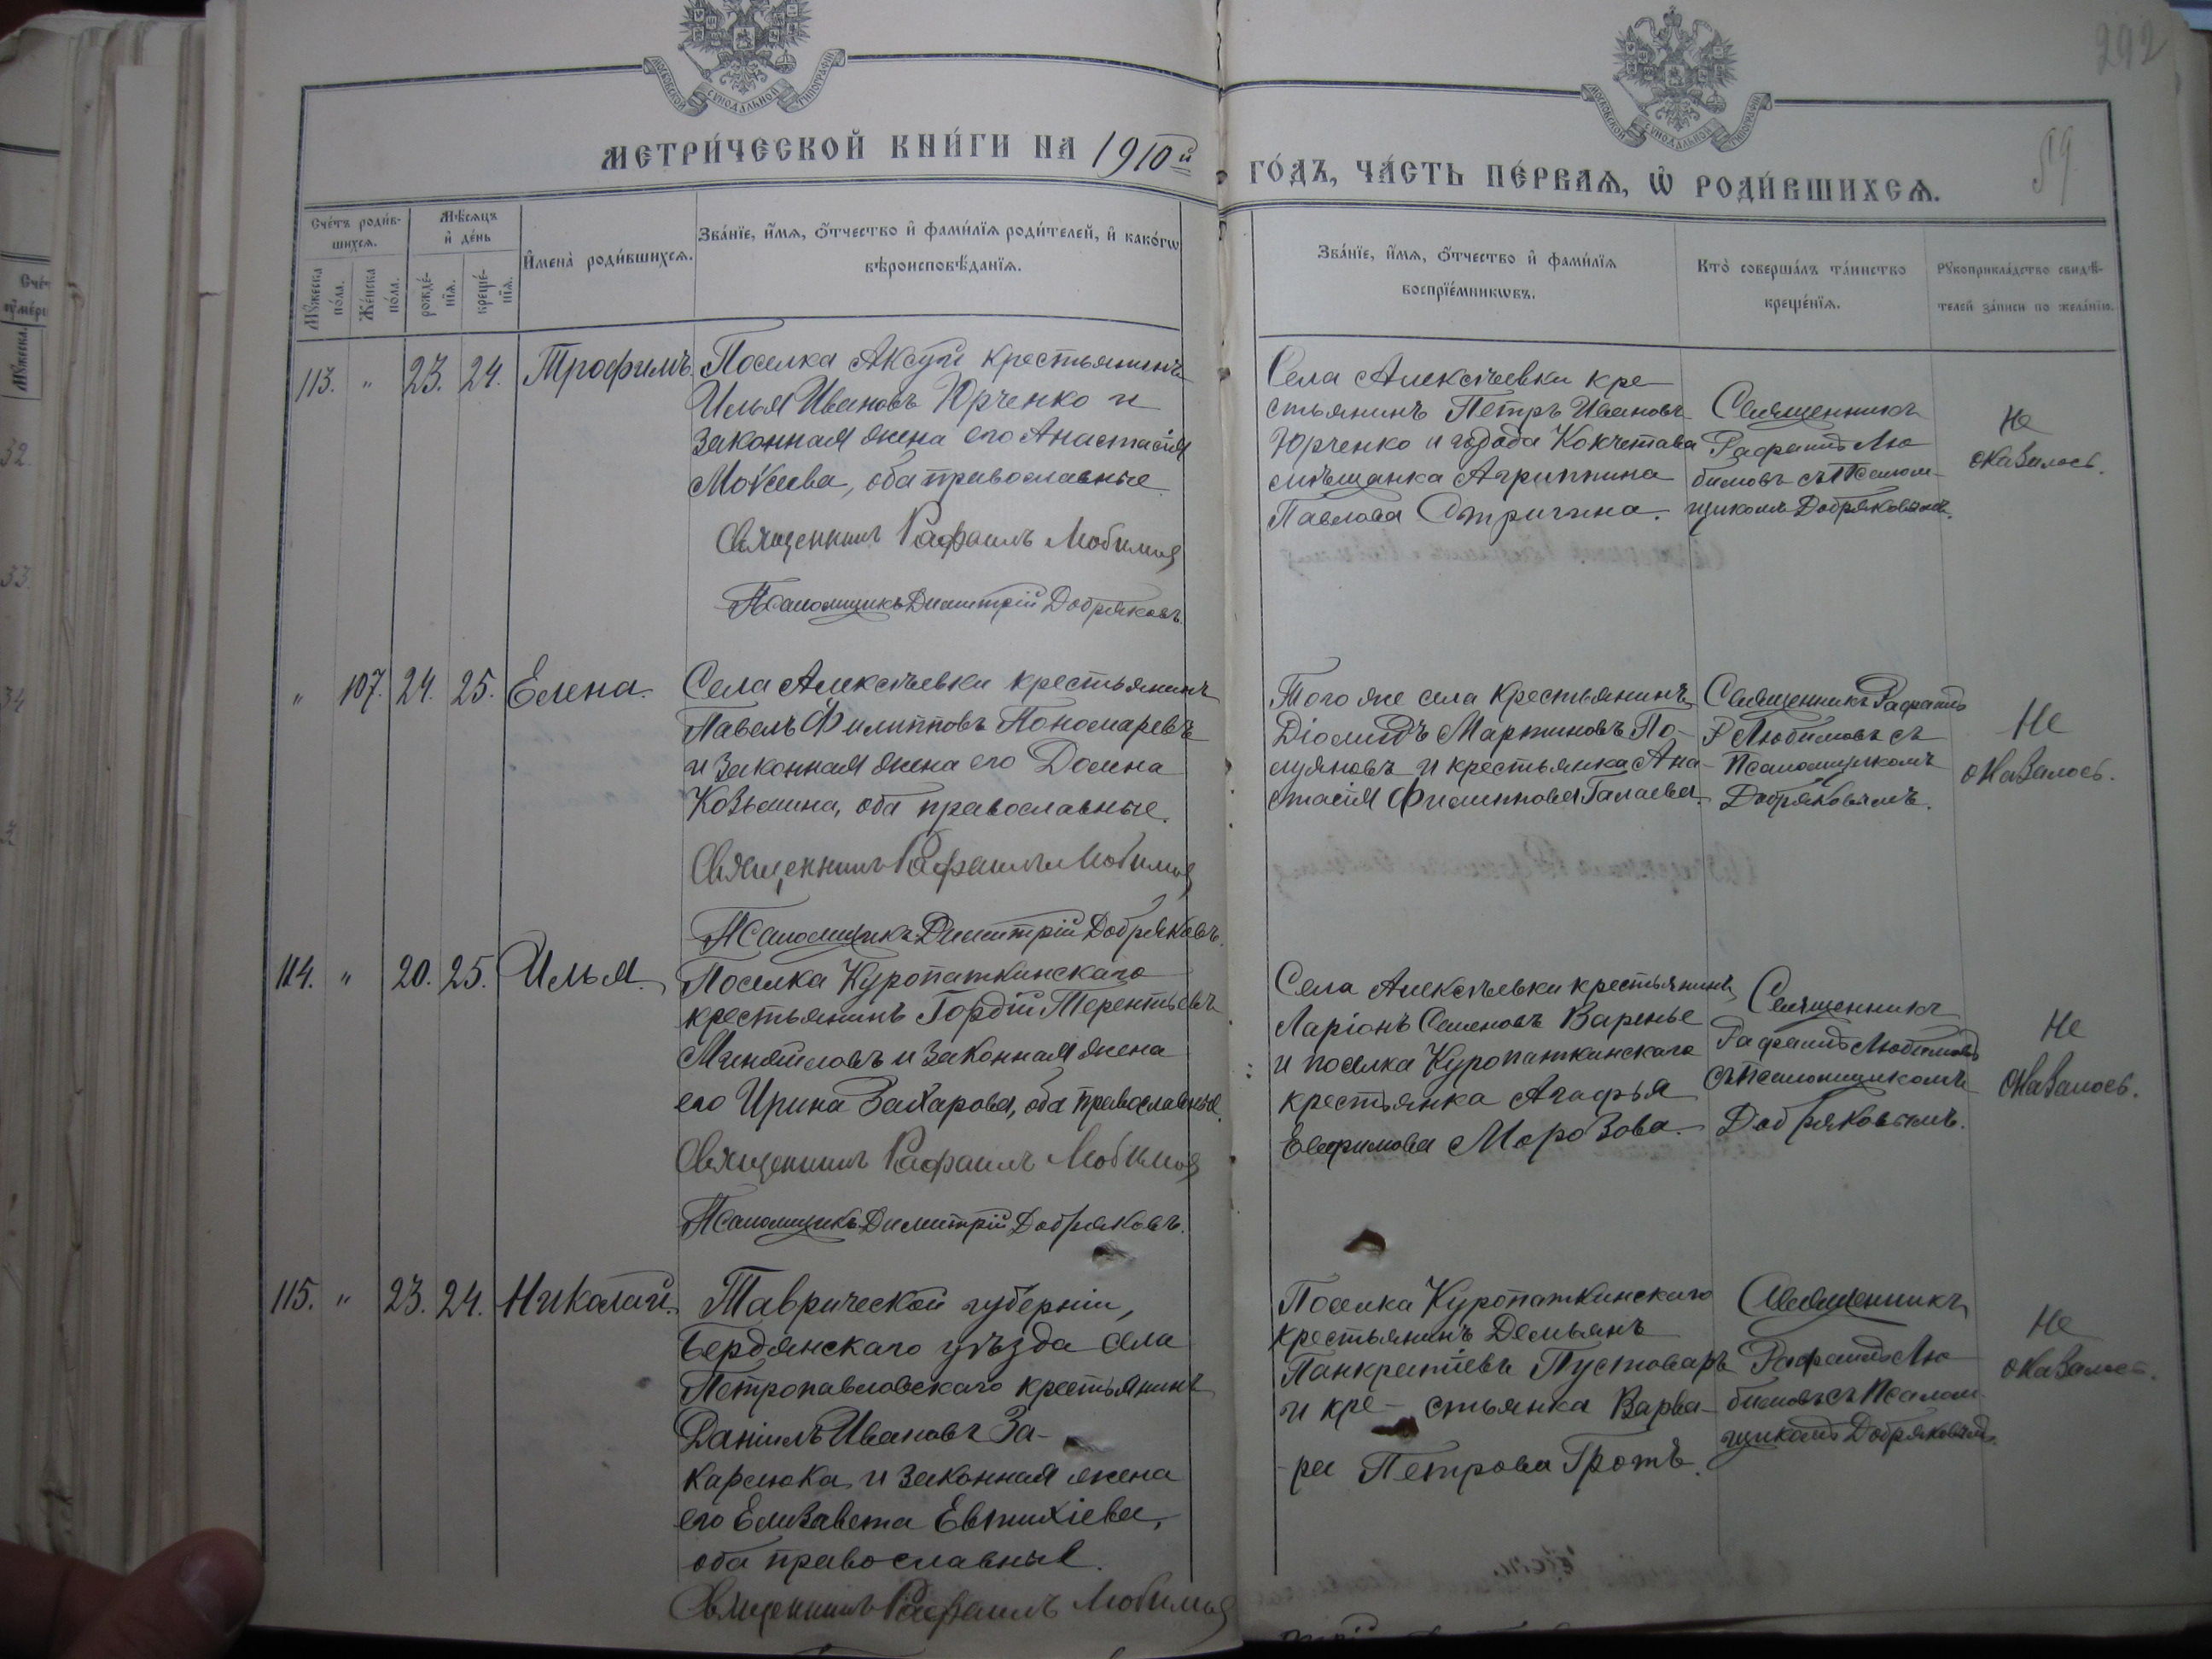 292
59
МОСКОВСКОЙ СѴНОДАЛЬНОЙ ТИПОГРАФІИ
МОСКОВСКОЙ СѴНОДАЛЬНОЙ ТИПОГРАФІИ
МЕТРИ́ЧЕСКОЙ КНИ́ГИ НА 1910й
ГО́ДЪ, ЧА́СТЬ ПЕ́РВАѦ, Ѡ РОДИ́ВШИХСѦ.
Сче́тъ роди́в-
шихсѧ.
Мꙋ́жеска
по́ла.
Же́нска
по́ла.
Мѣ́сѧцъ
и҆ де́нь
рожде́-
нїѧ.
креще́-
нїѧ.
И҆мена̀ роди́вшихсѧ.
Зва́нїе, и҆́мѧ, ѻ҆́тчество и҆ фами́лїѧ роди́телей, и҆ како́гѡ
вѣроисповѣ́данїѧ.
Зва́нїе, и҆́мѧ, ѻ҆́тчество и҆ фами́лїѧ
воспрїе́мникѡвъ.
Кто̀ соверша́лъ та́инство
креще́нїѧ.
Рꙋкоприкла́дство свидѣ́-
телей за́писи по жела́нїю.
113. " 23. 24. Трофимъ.
Поселка Аксуй крестьянинъ
Илья Ивановъ Юрченко и
законная жена его Анастасія
Мокеева, оба православные
Священникъ Рафаилъ Любимов
Псаломщикъ Димитрій Добряковъ.
Села Алексѣевки кре-
стьянинъ Петръ Ивановъ
Юрченко и города Кокчетава
мѣщанка Агриппина
Павлова Стригина.
Священникъ
Рафаилъ Лю-
бимовъ съ Псалом-
щикомъ Добряковымъ.
Не
оказалось.
" 107. 24. 25. Елена.
Села Алексѣевки крестьянинъ
Павелъ Филипповъ Пономаревъ
и законная жена его Домна
Козьмина, оба православные.
Священникъ Рафаилъ Любимов
Псаломщикъ Димитрій Добряковъ.
Того же села крестьянинъ
Діомидъ Мартиновъ По-
луяновъ и крестьянка Ана-
стасія Филиппова Галаева.
Священникъ Рафаилъ
Любимовъ съ
Псаломщикомъ
Добряковымъ.
Не
оказалось.
114. " 20. 25. Илья.
Поселка Куропаткинскаго
крестьянинъ Гордій Терентьевъ
и законная жена
его Ирина Захарова, оба православные.
Священникъ Рафаилъ Любимов
Псаломщикъ Димитрій Добряковъ.
Села Алексѣевки крестьянинъ
Ларіонъ Семеновъ Варенье
и поселка Куропаткинскаго
крестьянка Агафья
Евфимова Морозова.
Священникъ
Рафаилъ Любимовъ
съ псаломщикомъ
Добряковымъ.
Не
оказалось.
115. " 23. 24. Николай.
Таврической губерніи,
Бердянскаго уѣзда села
Петропавловскаго крестьянинъ
Даніилъ Ивановъ За-
карлюка и законная жена
его Елизавета Евтихіева,
оба православные.
Священникъ Рафаилъ Любимов
Поселка Куропаткинскаго
крестьянинъ Демьянъ
Панкратіевъ Пустоваръ
и кре- стьянка Варва-
-ра Петрова Гротъ.
Священникъ
Рафаилъ Лю-
бимовъ съ Псалом-
щикомъ Добряковымъ.
Не
оказалось.